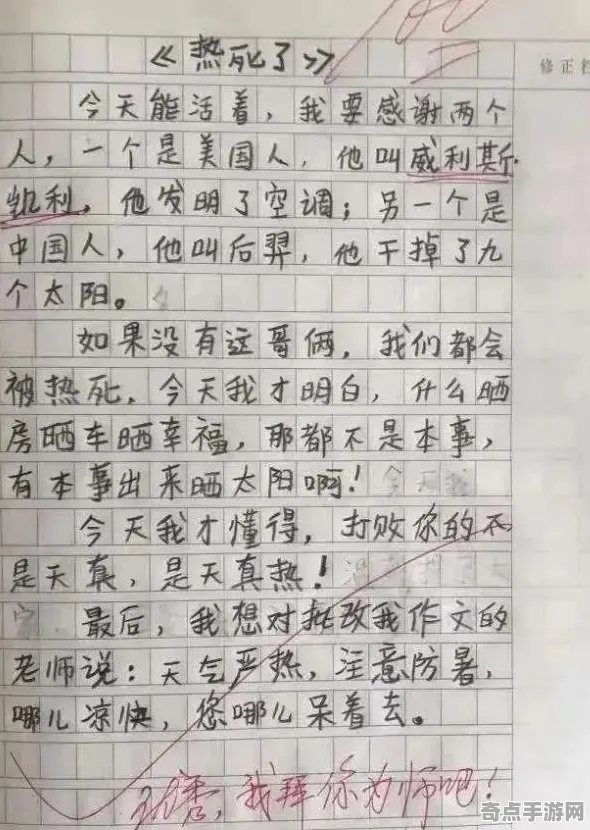 100
修正栏
《热死了》
今天能活着，我要感谢两个
人，一个是美国人，他叫威利斯·
凯利，他发明了空调；另一个是
中国人，他叫后羿，他干掉了九
个太阳。
如果没有这哥俩，我们都会
被热死，今天我才明白，什么晒
房晒车晒幸福，那都不是本事，
有本事出来晒太阳啊！
今天我才懂得，打败你的不
是天真，是天真热！
最后，我想对批改我作文的
老师说：天气严热，注意防暑，
哪儿凉快，您哪儿呆着去。
优秀，我拜你为师吧！
奇点手游网